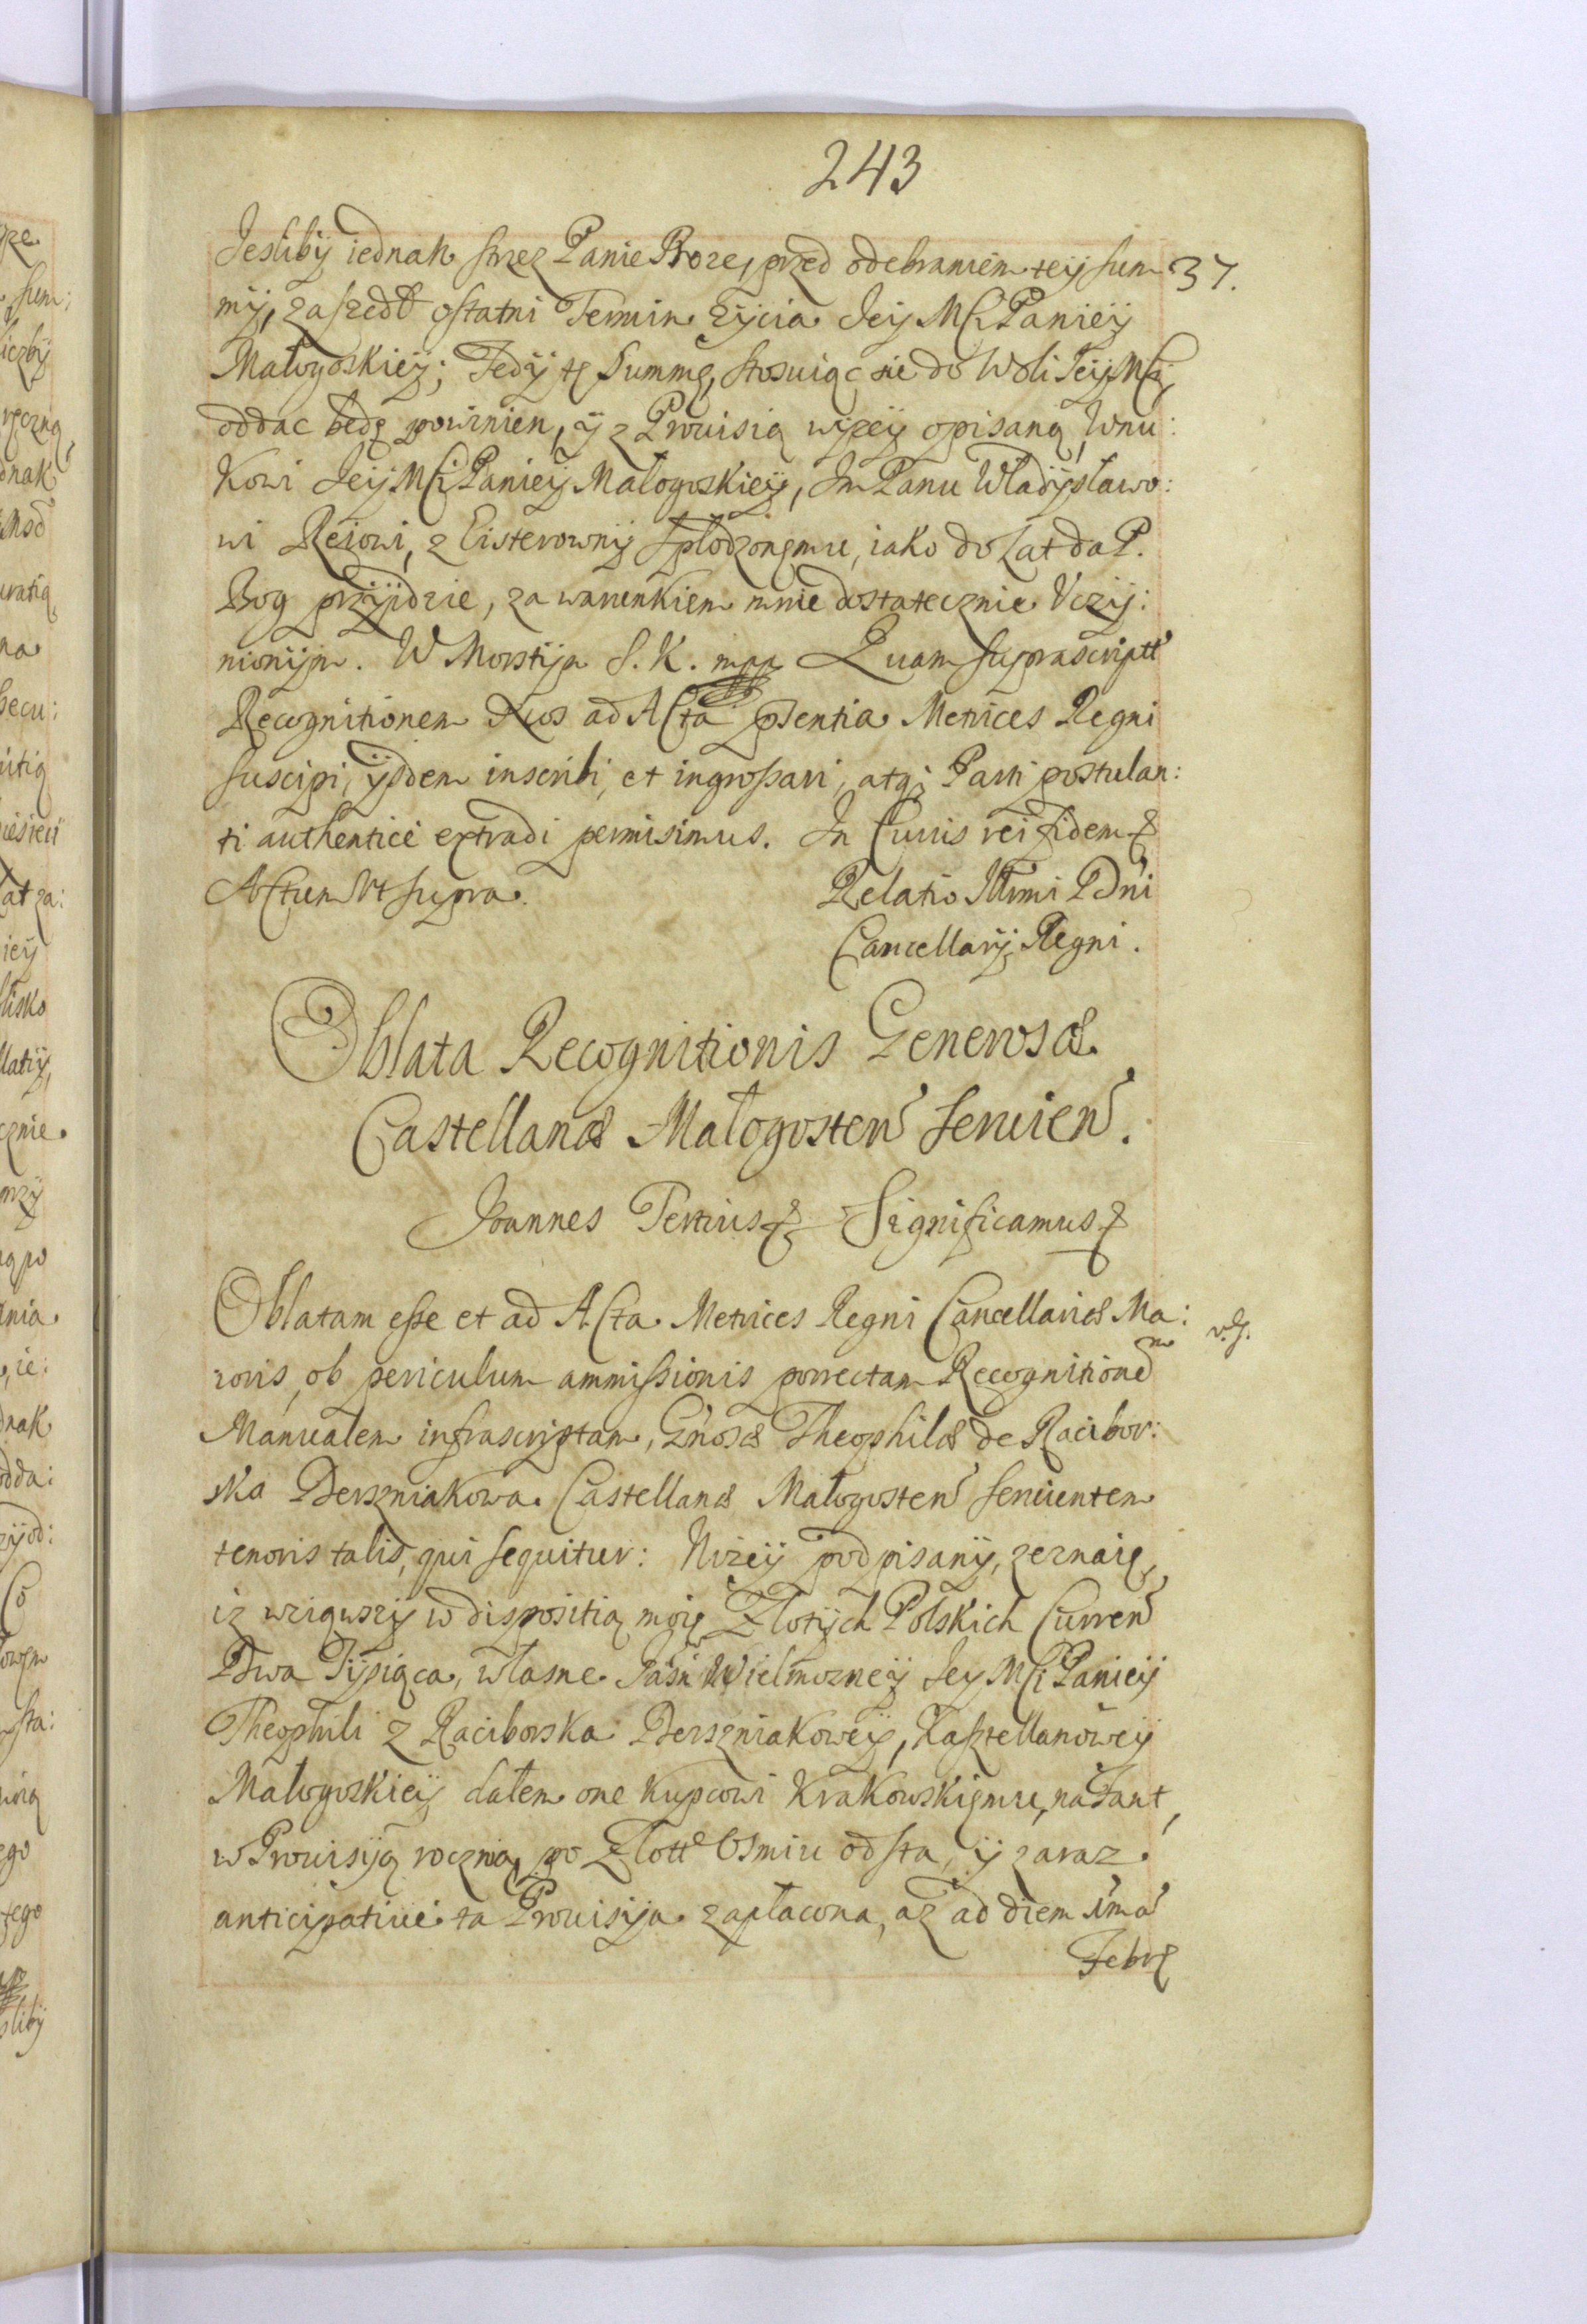 243
Jesliby iednak strzez Panie Boze, przed odebraniem teÿ sum 37.
mÿ, zaszedł ostatni Termin Zÿcia Jeÿ Mści Panieÿ
Małogoskieÿ; Tedÿ tę Summę, stosuiąc sie do Woli Jeÿ Mści,
oddac będę powinien, ÿ z Prouisią wÿzeÿ opisaną, Wnu:
kowi Jeÿ Mści Panieÿ Małogoskieÿ, Jm Panu Władÿsławo:
wi Reiowi, z Eisterownÿ Spłodzonęmu, iako do Lat da P.
Bog przÿidzie, za warunkiem mnie dostatecznie Vczÿ:
nionÿm. W Morstÿn S. K. mpp Quam suprascriptt
Recognitionem Nos ad Acta pñsentia Metrices Regni
suscipi, ÿsdem inscribi, et ingrossari, atq; Parti postulan:
ti authenticè extradi permisimus. In Cuius rei fidem &
Actum Vt supra. Relatio Illmi Dñi
Cancellarÿ Regni.
Oblata Recognitionis Generosæ
Castellanæ Małogosten seruien.
Joannes Tertius & Significamus &
Oblatam esse et ad Acta Metrices Regni Cancellariæ Ma: v. g.
ioris, ob periculum ammissionis porrectam Recognitionem
Manualem infrascriptam, Gñosæ Theophilæ de Racibor:
ska Derszniakowa Castellanæ Małogosten seruientem
tenoris talis, qui sequitur: Nizeÿ podpisanÿ, zeznaię,
iz wziąwszÿ w dispositią moię Złotÿch Polskich Curren
Dwa Tÿsiąca, własne Jaśń Wielmozneÿ Jey Mści Panieÿ
Theophili z Raciborska Derszniakoweÿ, Kasztellanoweÿ
Małogoskieÿ dałem one kupcowi Krakowskięmu, na Fant,
w Prouisÿą roczną, po Złott Osmiu od sta, ÿ zaraz
anticipatiuè ta Prouisÿa zapłacona, az ad diem 1mã
Febr